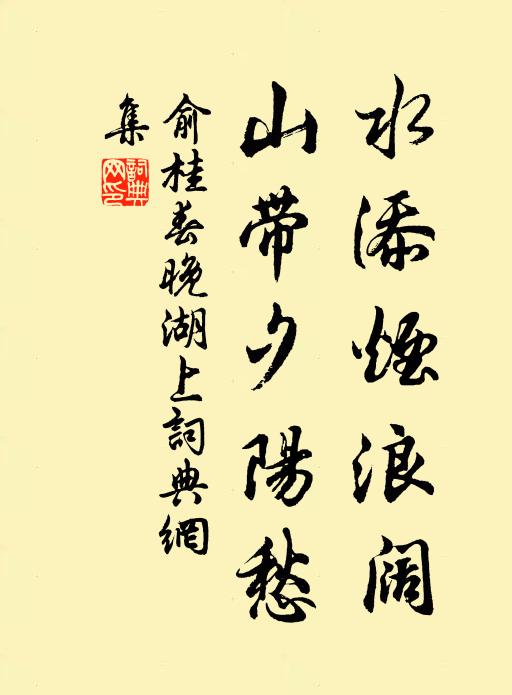 水添煙浪阔
山带夕陽愁
俞桂春晚湖上詞典網
集
詞典
网印